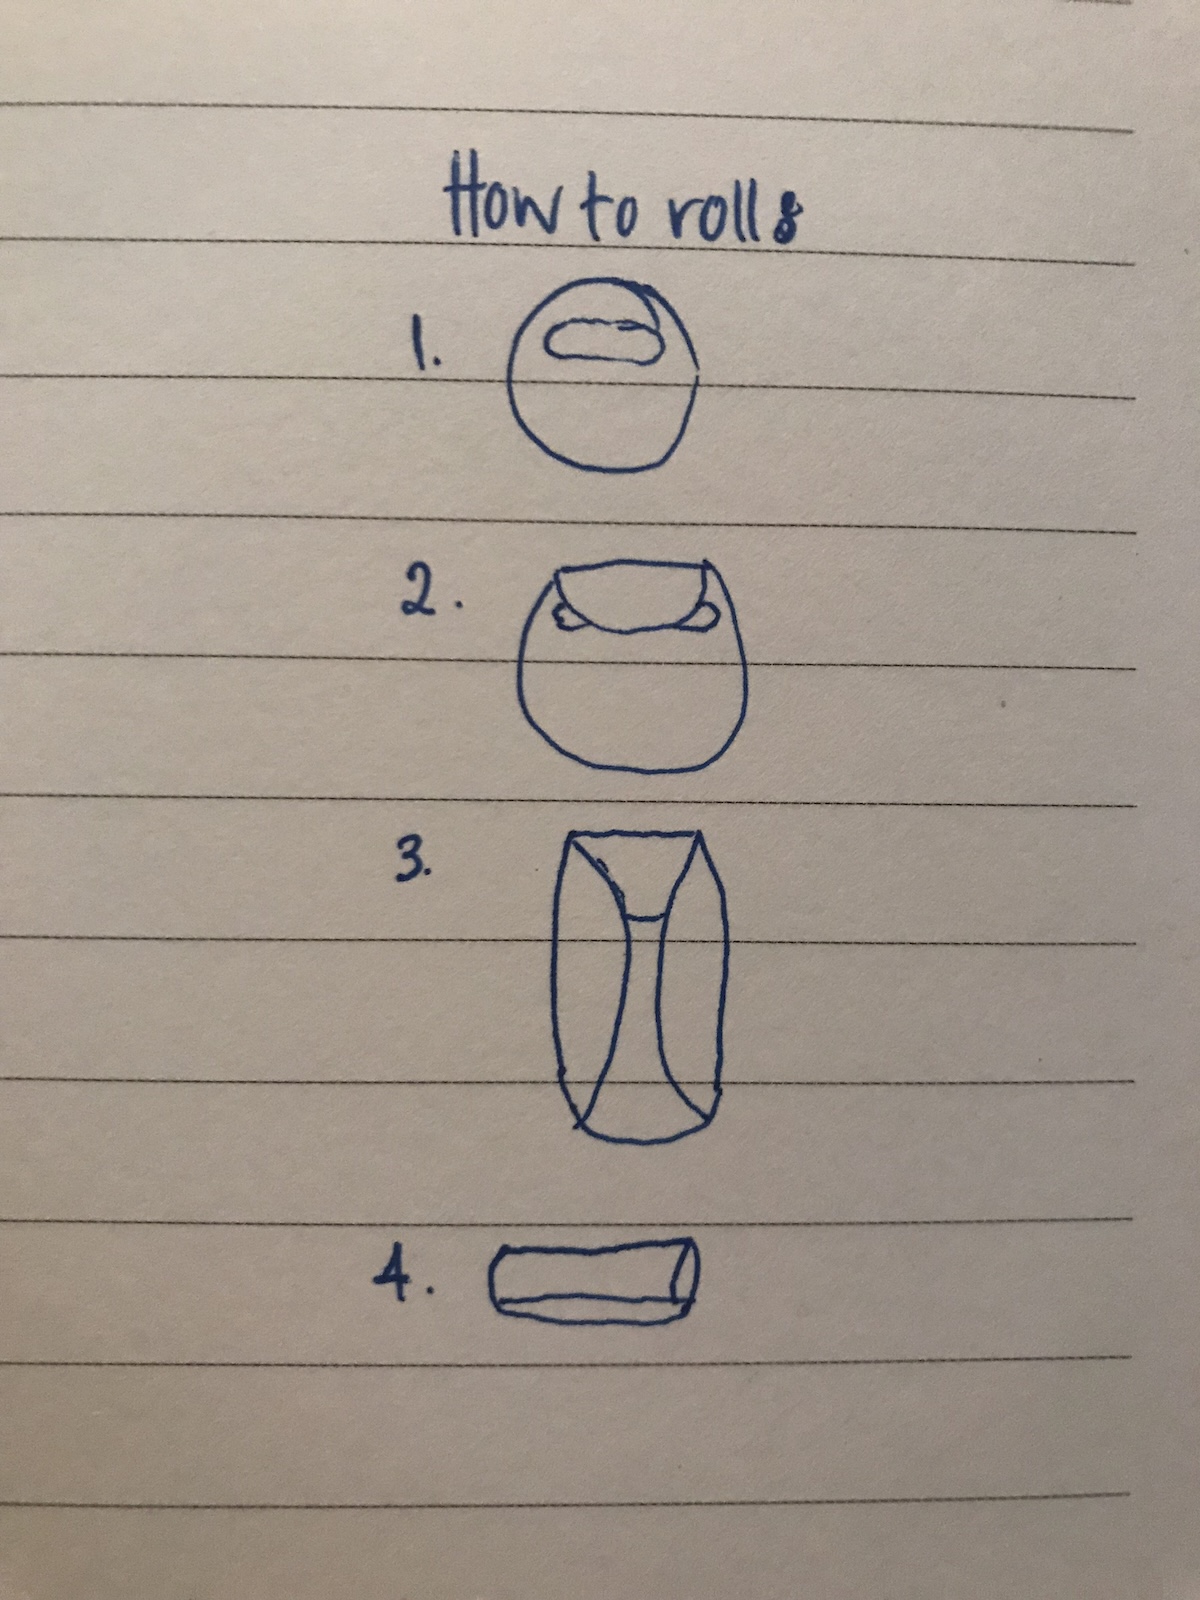 How to rolls
1.
2.
3.
4.